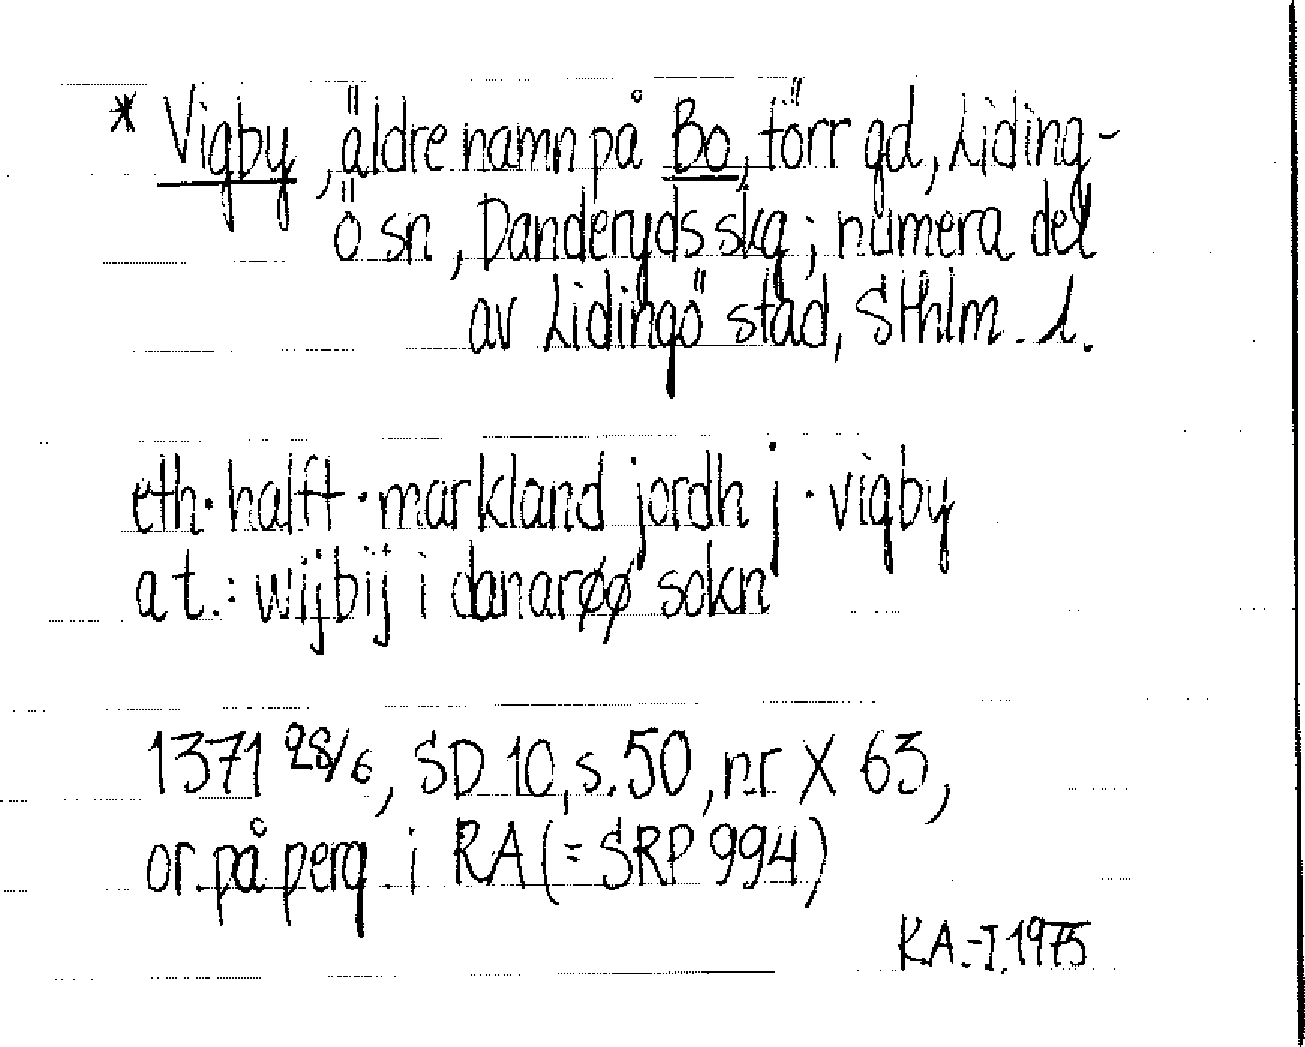 * Vigby, äldre namn på Bo, förr gd, Liding-
ö sn, Danderyds skg; numera del
av Lidingö stad, Sthlm. l.
eth · halft · markland jordh j · vigby
at.: wijbij i danarøø sokn
1371 28/6, SD 10, s. 50, nr X 63,
or. på perg. i RA (= SRP 994)
KA.-I. 1975